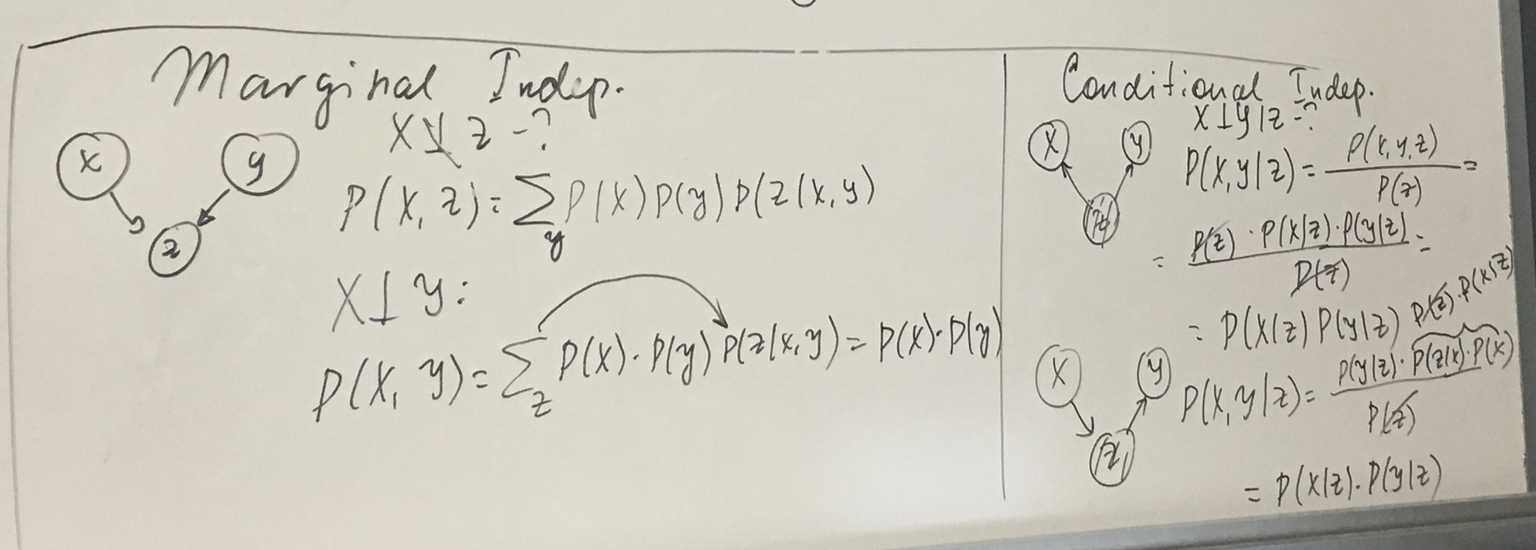 Marginal Indep.
X ⊥̸ z - ?
x
y
z
P(X, z) = ∑_y P(x) P(y) P(z|x, y)
X ⊥ y :
P(X, y) = ∑_z P(x) · P(y) P(z|x, y) = P(x) · P(y)
Conditional Indep.
X ⊥ y | z - ?
X
y
z
P(X, y | z) = P(x, y, z) / P(z) =
= P(z) · P(x|z) · P(y|z) / P(z) =
= P(x|z) P(y|z)
P(z) · P(x|z)
X
y
z
P(X, y | z) = P(y|z) · P(z|x) · P(x) / P(z)
= P(x|z) · P(y|z)